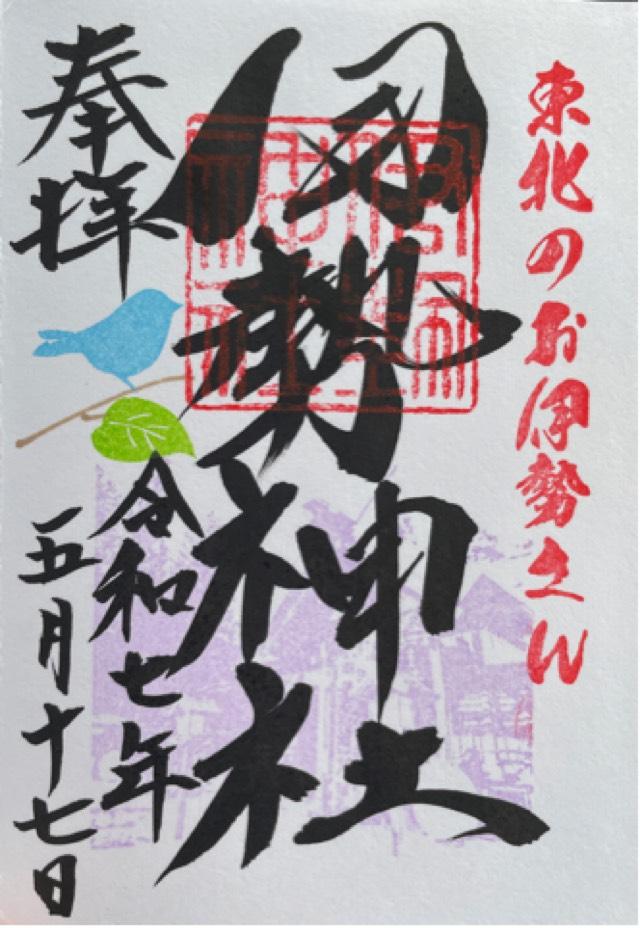 東北のお伊勢さん
伊勢神社
伊勢神社
奉拝
令和七年
五月十七日